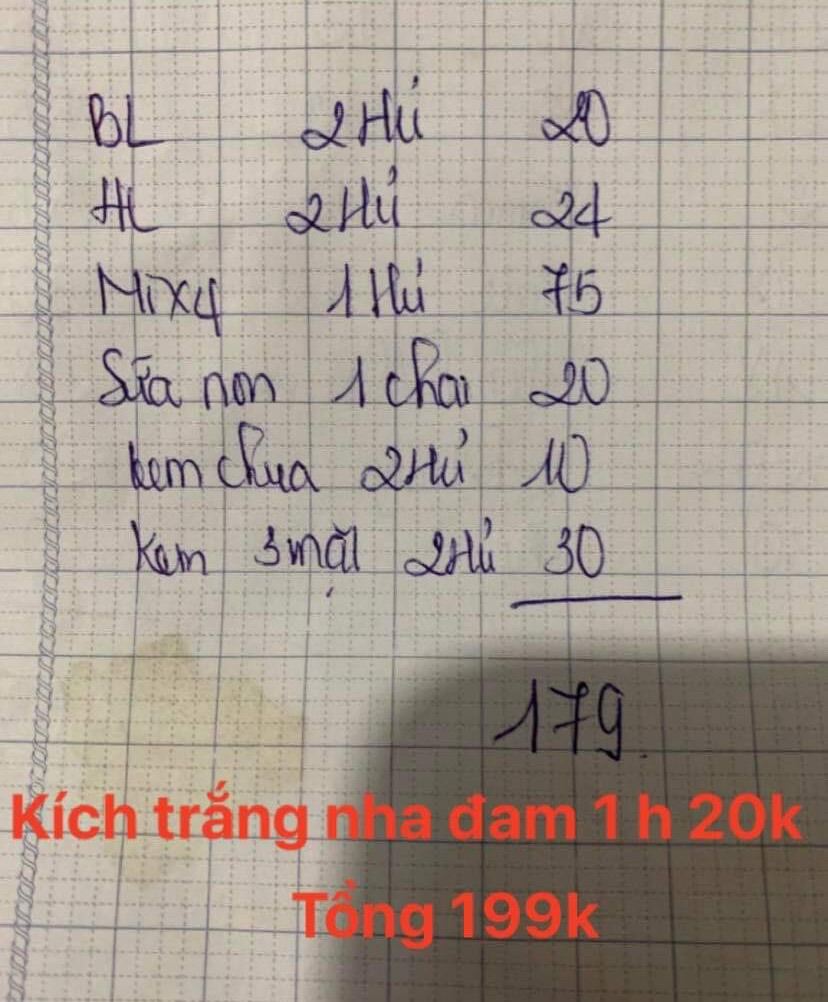 BL 2 Hủ 20
HL 2 Hủ 24
Mix4 1 Hủ 75
Sữa non 1 chai 20
kem chua 2 Hủ 10
Kem 3 mặt 2 Hủ 30
179
Kích trắng nha đam 1 h 20k
Tổng 199k